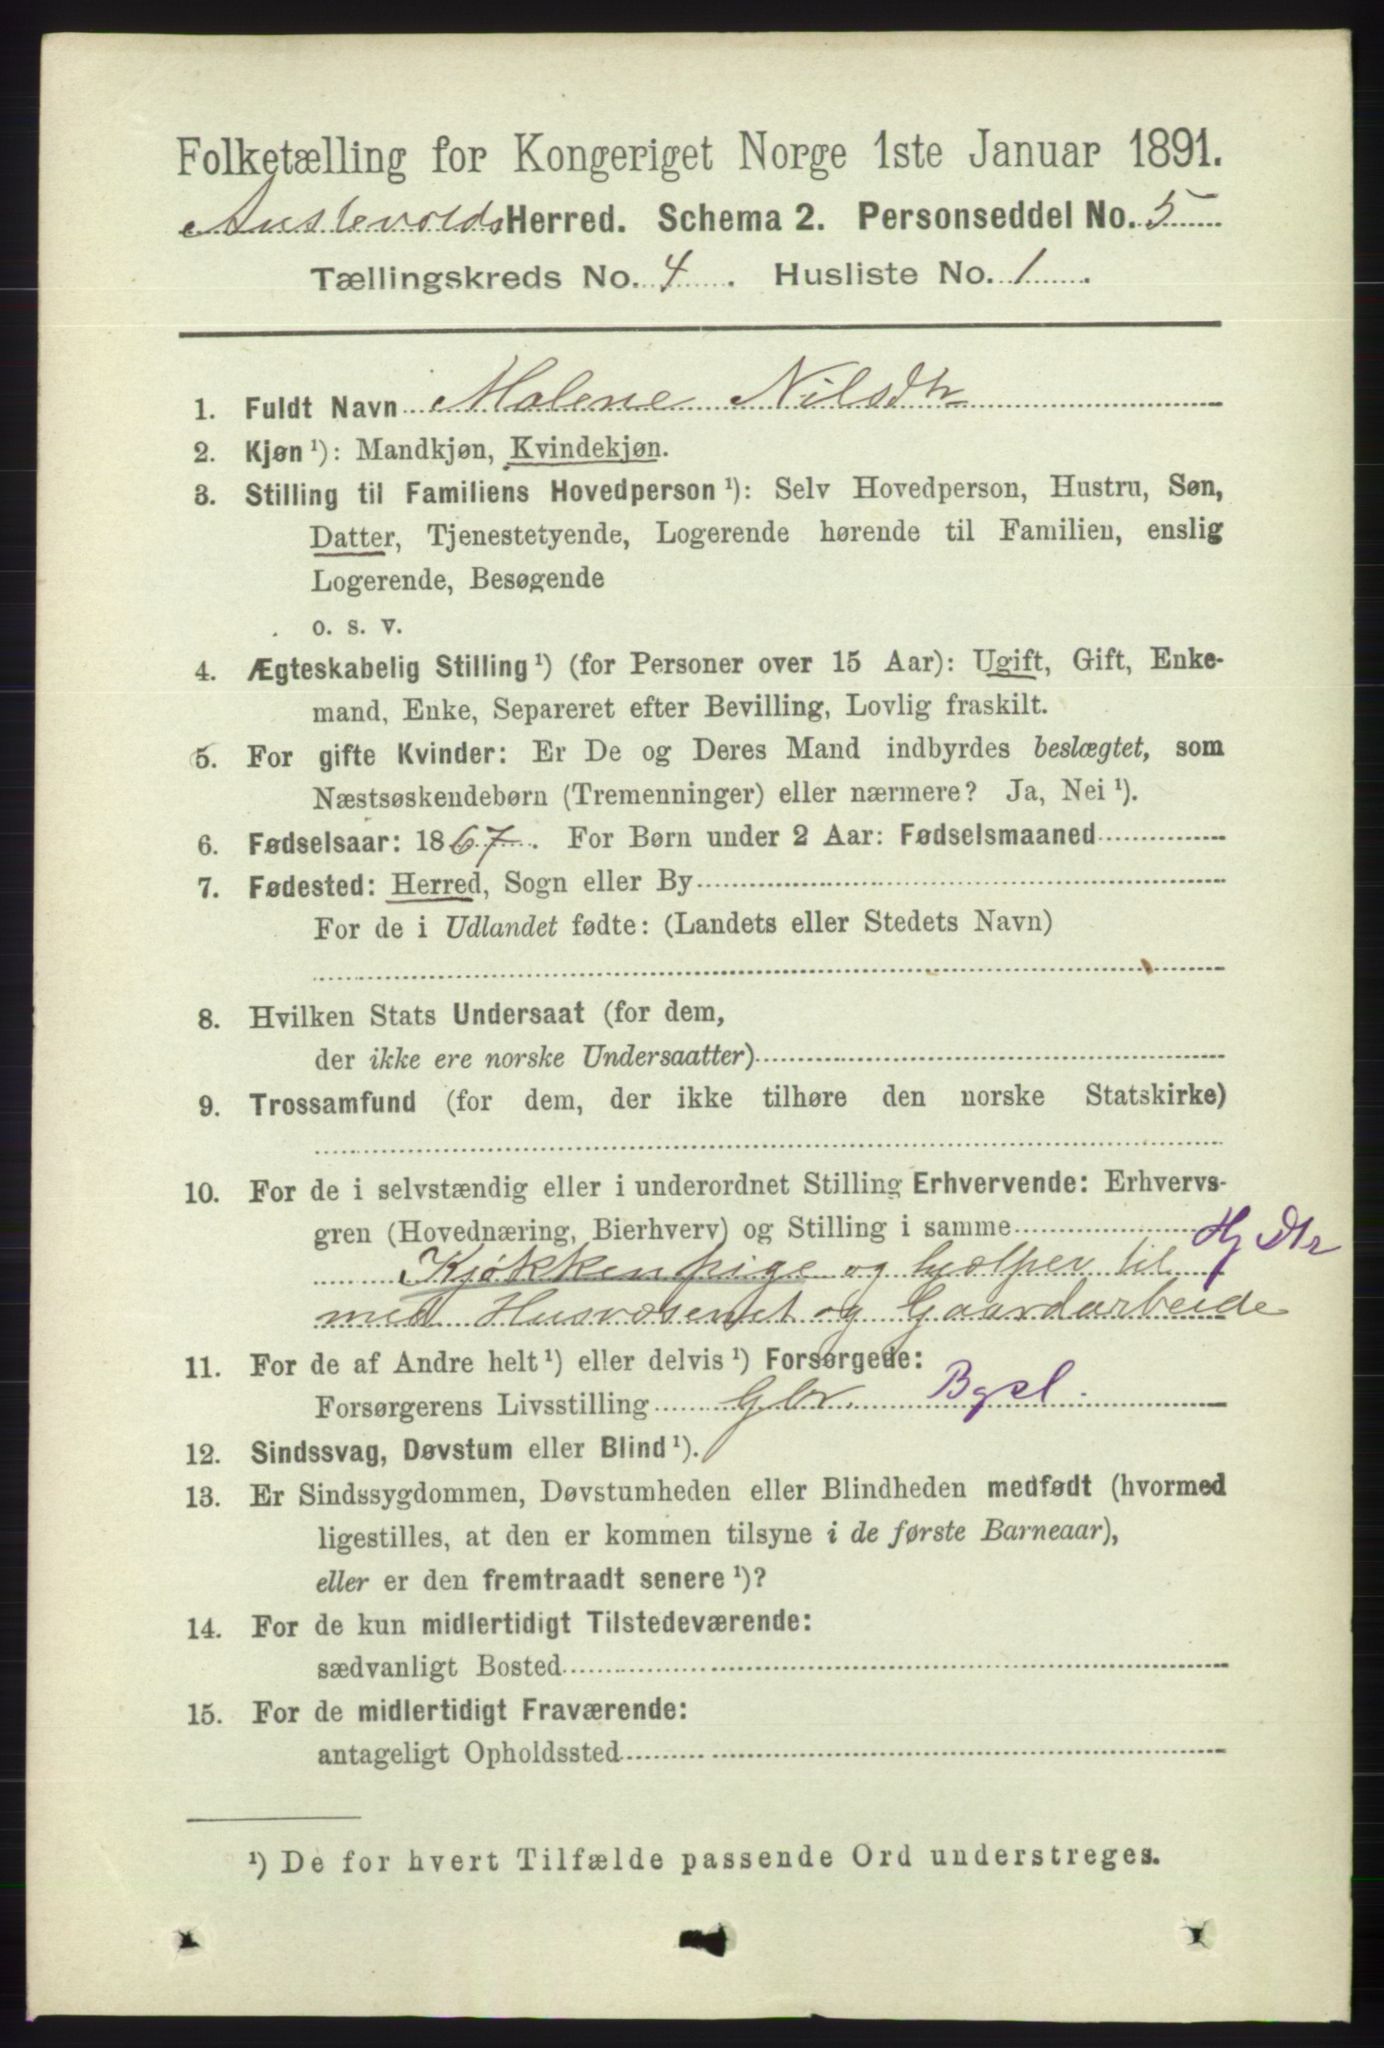 Folketælling for Kongeriget Norge 1ste Januar 1891.
Austevolds Herred. Schema 2. Personseddel No. 5
Tællingskreds No. 4. Husliste No. 1.
1. Fuldt Navn Malene Nilsdtr
2. Kjøn ¹): Mandkjøn, Kvindekjøn.
3. Stilling til Familiens Hovedperson ¹): Selv Hovedperson, Hustru, Søn,
Datter, Tjenestetyende, Logerende hørende til Familien, enslig
Logerende, Besøgende
o. s. v.
4. Ægteskabelig Stilling ¹) (for Personer over 15 Aar): Ugift, Gift, Enke-
mand, Enke, Separeret efter Bevilling, Lovlig fraskilt.
5. For gifte Kvinder: Er De og Deres Mand indbyrdes beslægtet, som
Næstsøskendebørn (Tremenninger) eller nærmere? Ja, Nei ¹).
6. Fødselsaar: 1867. For Børn under 2 Aar: Fødselsmaaned
7. Fødested: Herred, Sogn eller By
For de i Udlandet fødte: (Landets eller Stedets Navn)
8. Hvilken Stats Undersaat (for dem,
der ikke ere norske Undersaatter)
9. Trossamfund (for dem, der ikke tilhøre den norske Statskirke)
10. For de i selvstændig eller i underordnet Stilling Erhvervende: Erhvervs-
gren (Hovednæring, Bierhverv) og Stilling i samme Hj Dtr
Kjøkkenpige og hjælper til
med Husvæsenet og Gaardarbeide
11. For de af Andre helt ¹) eller delvis ¹) Forsørgede:
Forsørgerens Livsstilling Gbr. Bgsl.
12. Sindssvag, Døvstum eller Blind ¹).
13. Er Sindssygdommen, Døvstumheden eller Blindheden medfødt (hvormed
ligestilles, at den er kommen tilsyne i de første Barneaar),
eller er den fremtraadt senere ¹)?
14. For de kun midlertidigt Tilstedeværende:
sædvanligt Bosted
15. For de midlertidigt Fraværende:
antageligt Opholdssted
¹) De for hvert Tilfælde passende Ord understreges.